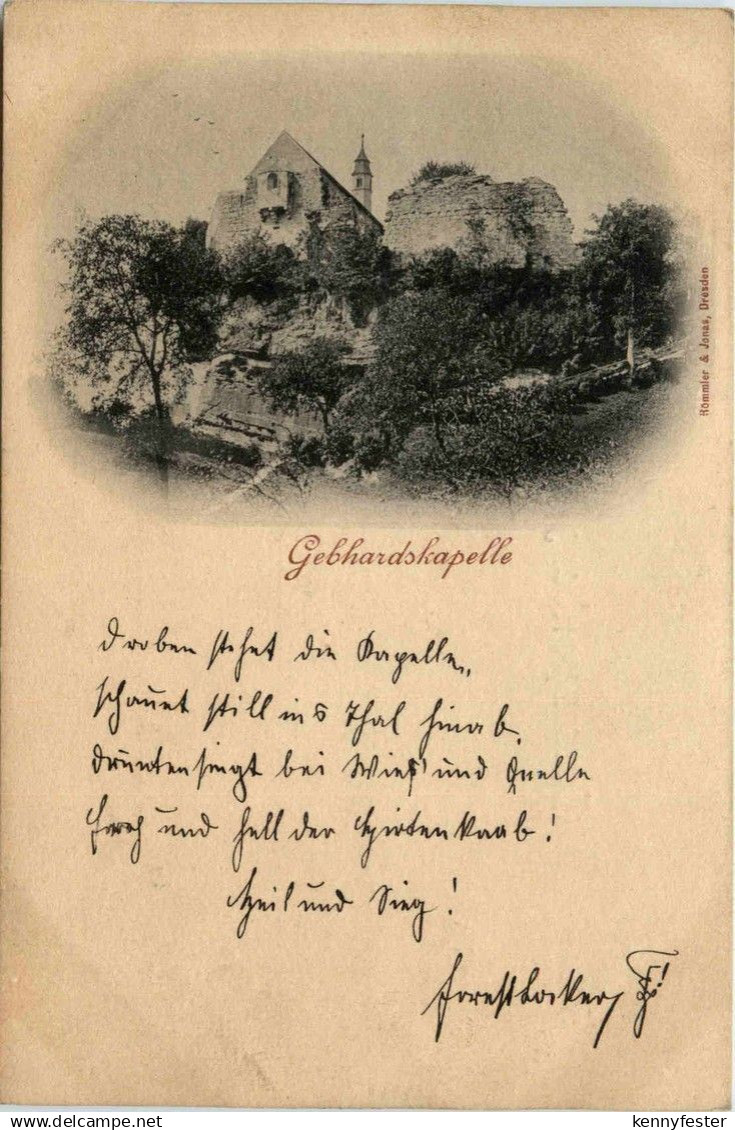 Römmler & Jonas, Dresden
Gebhardskapelle
Droben stehet die Kapelle,
schauet still ins Thal hinab,
drunten singt bei Wies' und Quelle
froh und hell der Hirtenkaab!
Heil und Sieg!
delcampe.net
kennyfester